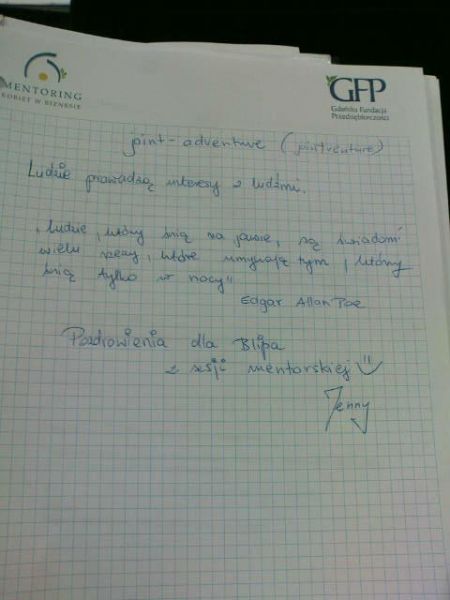 MENTORING
KOBIET W BIZNESIE
GFP
Gdańska Fundacja
Przedsiębiorczości
joint-adventure (jointventure)
Ludzie prowadzą interesy z ludźmi.
„Ludzie, którzy śnią na jawie, są świadomi
wielu rzeczy, które umykają tym, którzy
śnią tylko w nocy"
Edgar Allan Poe
Pozdrowienia dla Blipa
z sesji mentorskiej
Jenny